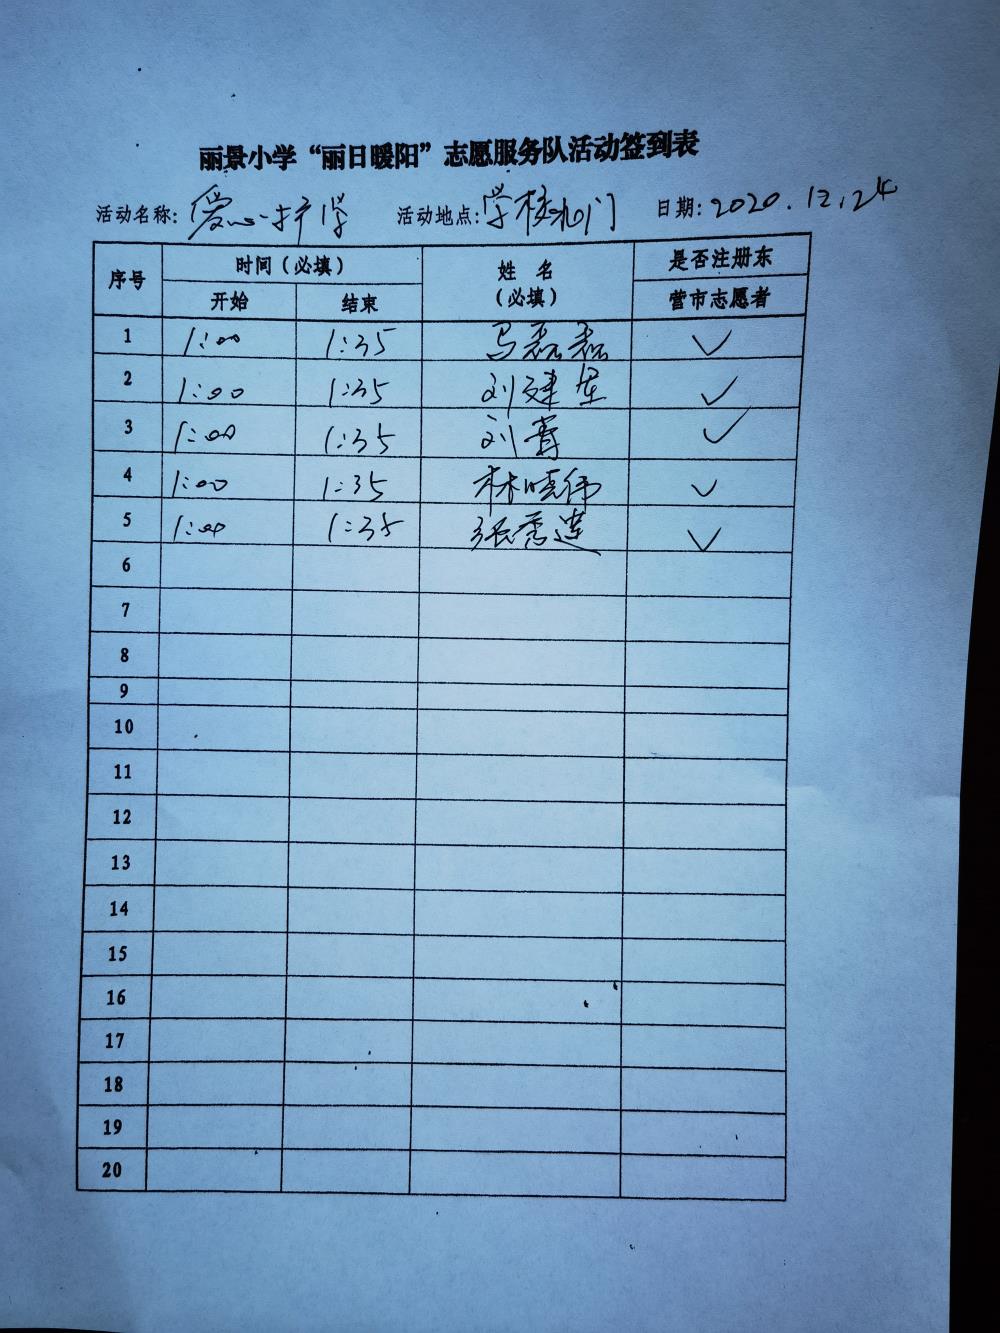 丽景小学“丽日暖阳”志愿服务队活动签到表
活动名称: 爱心护学 活动地点: 学校北门 日期: 2020.12.24
序号 时间(必填) 姓 名 是否注册东
开始 结束 (必填) 营市志愿者
1 1:00 1:35 马磊磊 ✓
2 1:00 1:35 刘建 ✓
3 1:00 1:35 刘 ✓
4 1:00 1:35 林晓伟 ✓
5 1:00 1:35 张秀莲 ✓
6
7
8
9
10
11
12
13
14
15
16
17
18
19
20